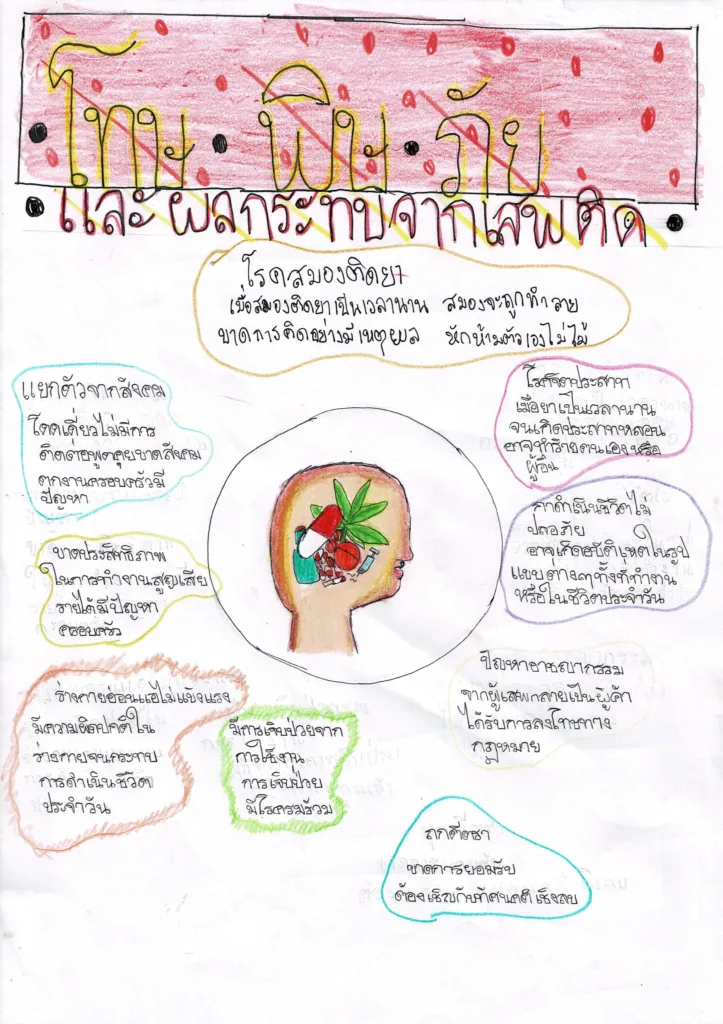 โทษ • พิษ • ภัย
• และผลกระทบจากเสพติด •
โรคสมองติดยา
เมื่อสมองติดยาเป็นเวลานาน สมองจะถูกทำลาย
ขาดการคิดอย่างมีเหตุผล หักห้ามตัวเองไม่ไม้
แยกตัวจากสังคม
โดดเดี่ยวไม่มีการ
ติดต่อพูดคุยขาดสังคม
ตกงานครอบครัวมี
ปัญหา
โรคจิตประสาท
เมื่อยาเป็นเวลานาน
จนเกิดประสาทหลอน
อาจทำร้ายตนเองหรือ
ผู้อื่น
กาดำเนินชีวิตไม่
ปลอภัย
อาจเกิดอุบัติเหตุในรูป
แบบต่างๆทั้งที่ทำงาน
หรือในชีวิตประจำวัน
ขาดประสิทธิภาพ
ในการทำงานสูญเสีย
รายได้มีปัญหา
ครอบครัว
ปัญหาอาชญากรรม
จากผู้เสพกลายเป็นผู้ค้า
ได้รับการลงโทษทาง
กฎหมาย
ร่างกายอ่อนแอไม่แข็งแรง
มีความผิดปกติใน
ร่างกายจนกระทบ
การดำเนินชีวิต
ประจำวัน
มีการเจ็บป่วยจาก
การใช้งาน
การเจ็บป่วย
มีโรครมร่วม
ถูกตีตรา
ขาดการยอมรับ
ต้องเผชิญกับทัศนคติเชิงลบ